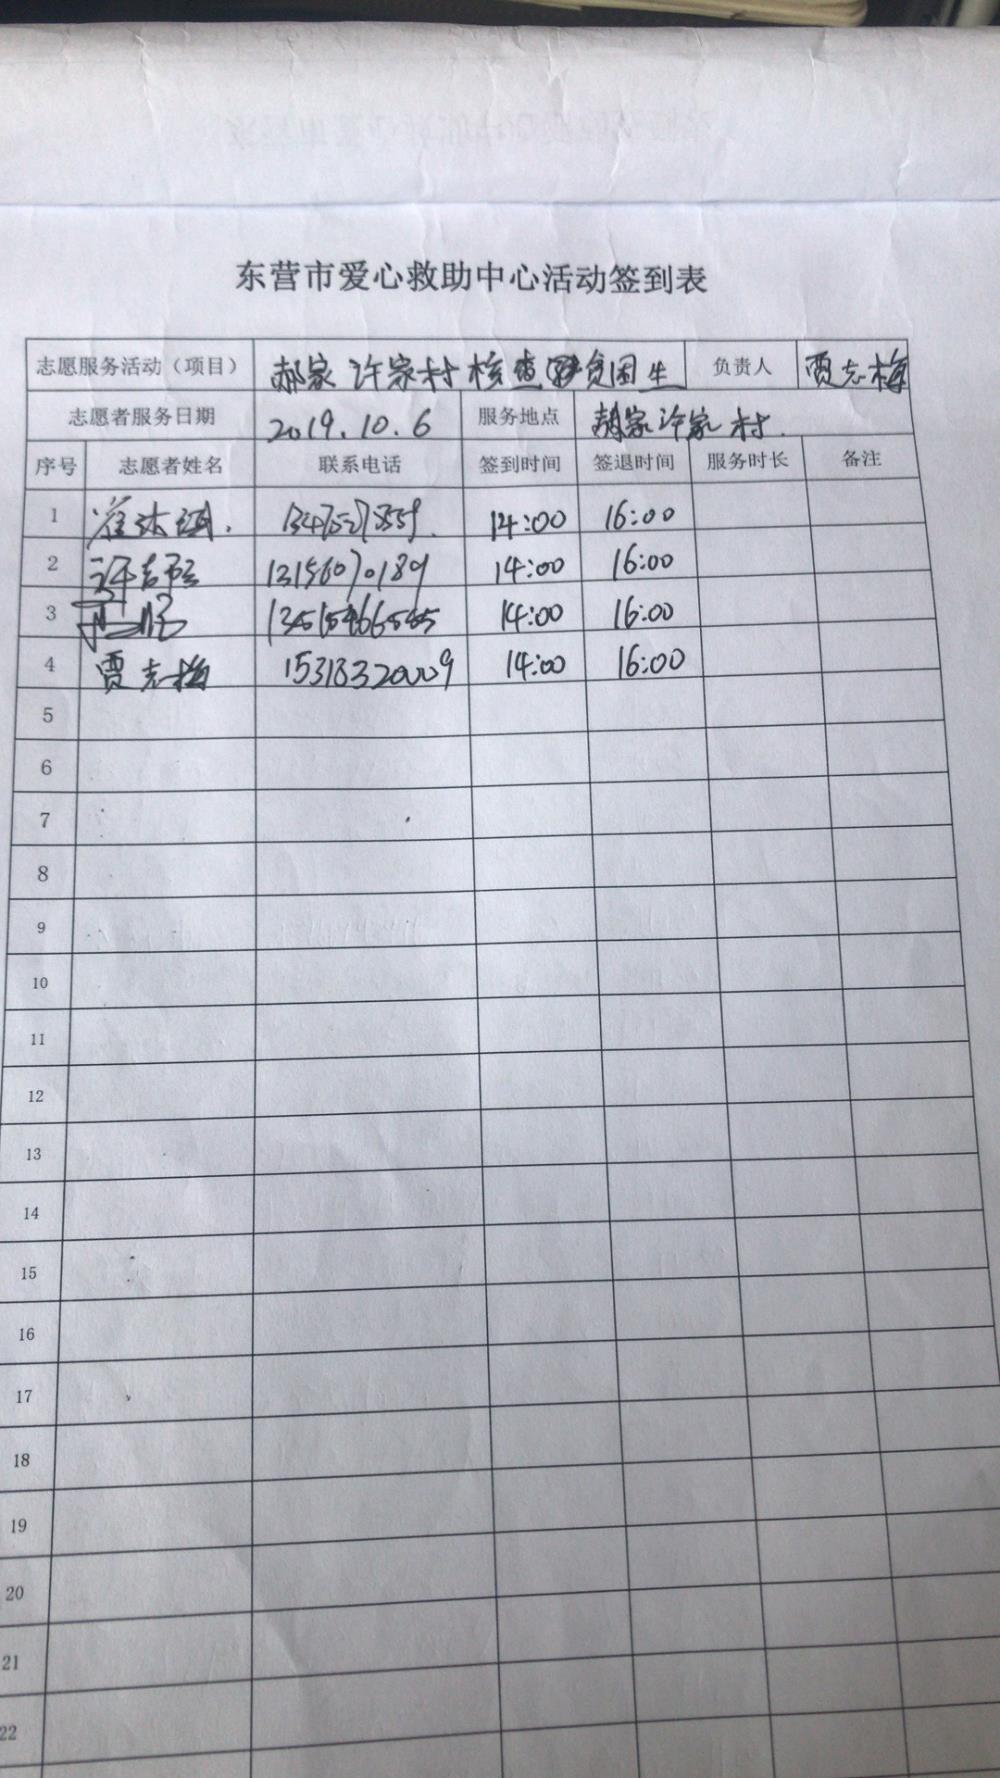 东营市爱心救助中心活动签到表
志愿服务活动（项目） 郝家许家村核查贫困生 负责人 贾志梅
志愿者服务日期 2019.10.6 服务地点 郝家许家村.
序号 志愿者姓名 联系电话 签到时间 签退时间 服务时长 备注
1 14:00 16:00
2 13156070189 14:00 16:00
3 14:00 16:00
4 贾志梅 15318320009 14:00 16:00
5
6
7
8
9
10
11
12
13
14
15
16
17
18
19
20
21
22